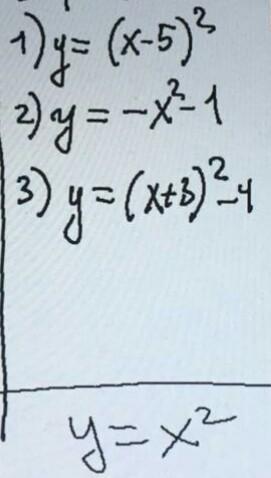 1) y = (x-5)²
2) y = -x² - 1
3) y = (x+3)² - 4
y = x²